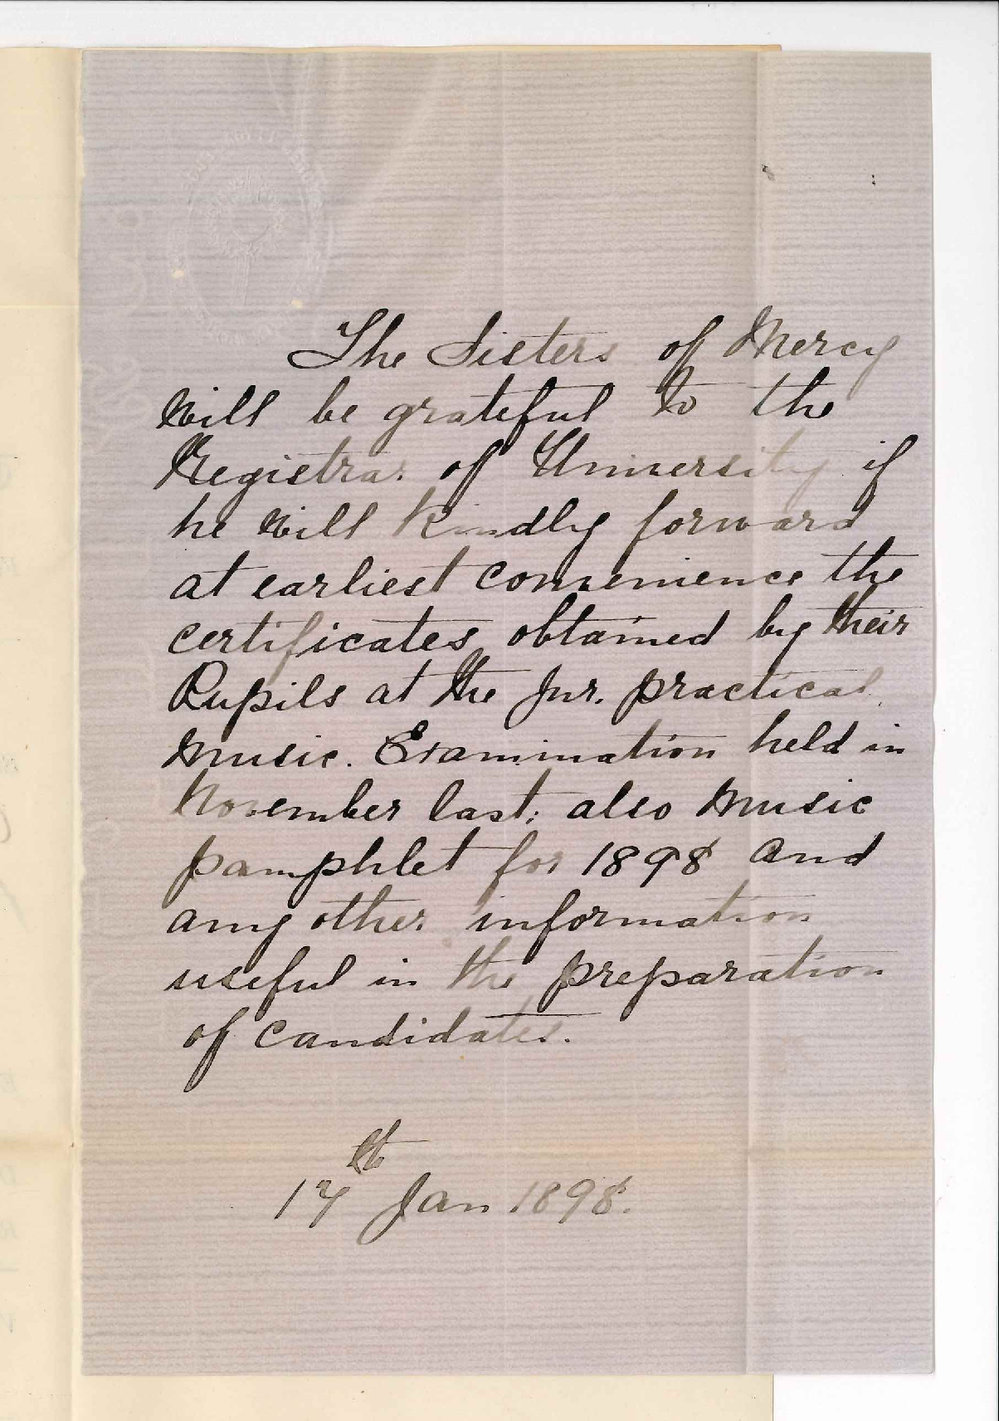 The Sisters of Mercy
will be grateful to the
Registrar of University if
he will kindly forward
at earliest convenience the
certificates obtained by their
Pupils at the Jnr. practical
Music. Examination held in
November last; also Music
pamphlet for 1898 and
any other information
useful in the preparation
of candidates.
17th Jan 1898.